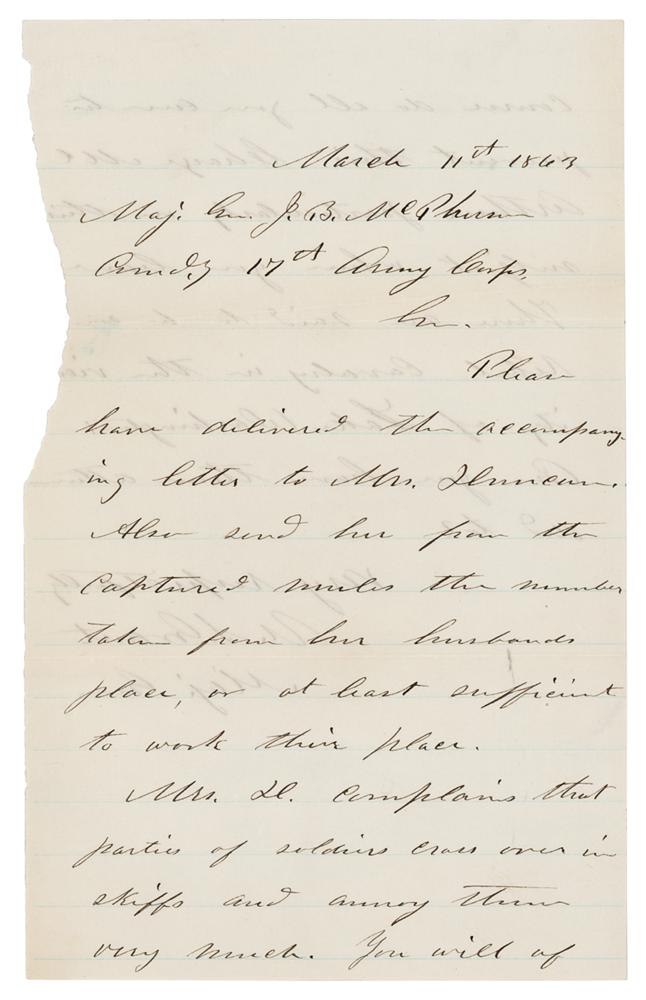 March 11th 1863
Maj. Gn. J. B. McPherson
Comd.g 17th Army Corps,
Gn.
Please
have delivered the accompany-
ing letter to Mrs. Duncan.
Also send her from the
captured mules the number
taken from her husbands
place, or at least sufficient
to work their place.
Mrs. D. complains that
parties of soldiers cross over in
skiffs and annoy them
very much. You will of